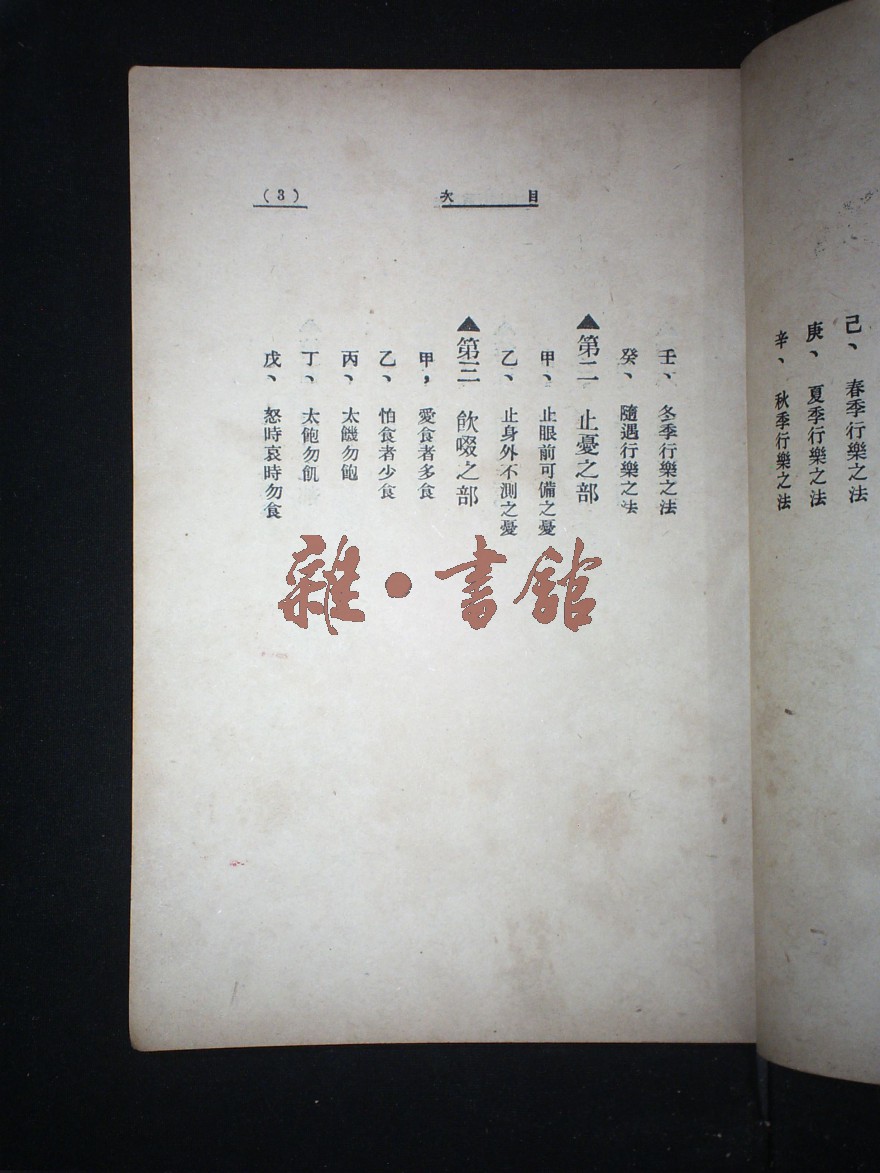 己、春季行樂之法
庚、夏季行樂之法
辛、秋季行樂之法
目次
(3)
壬、冬季行樂之法
癸、隨遇行樂之法
▲第二 止憂之部
甲、止眼前可備之憂
乙、止身外不測之憂
▲第三 飲啜之部
甲，愛食者多食
乙、怕食者少食
丙、太饑勿飽
丁、太飽勿飢
戊、怒時哀時勿食
雜•書館